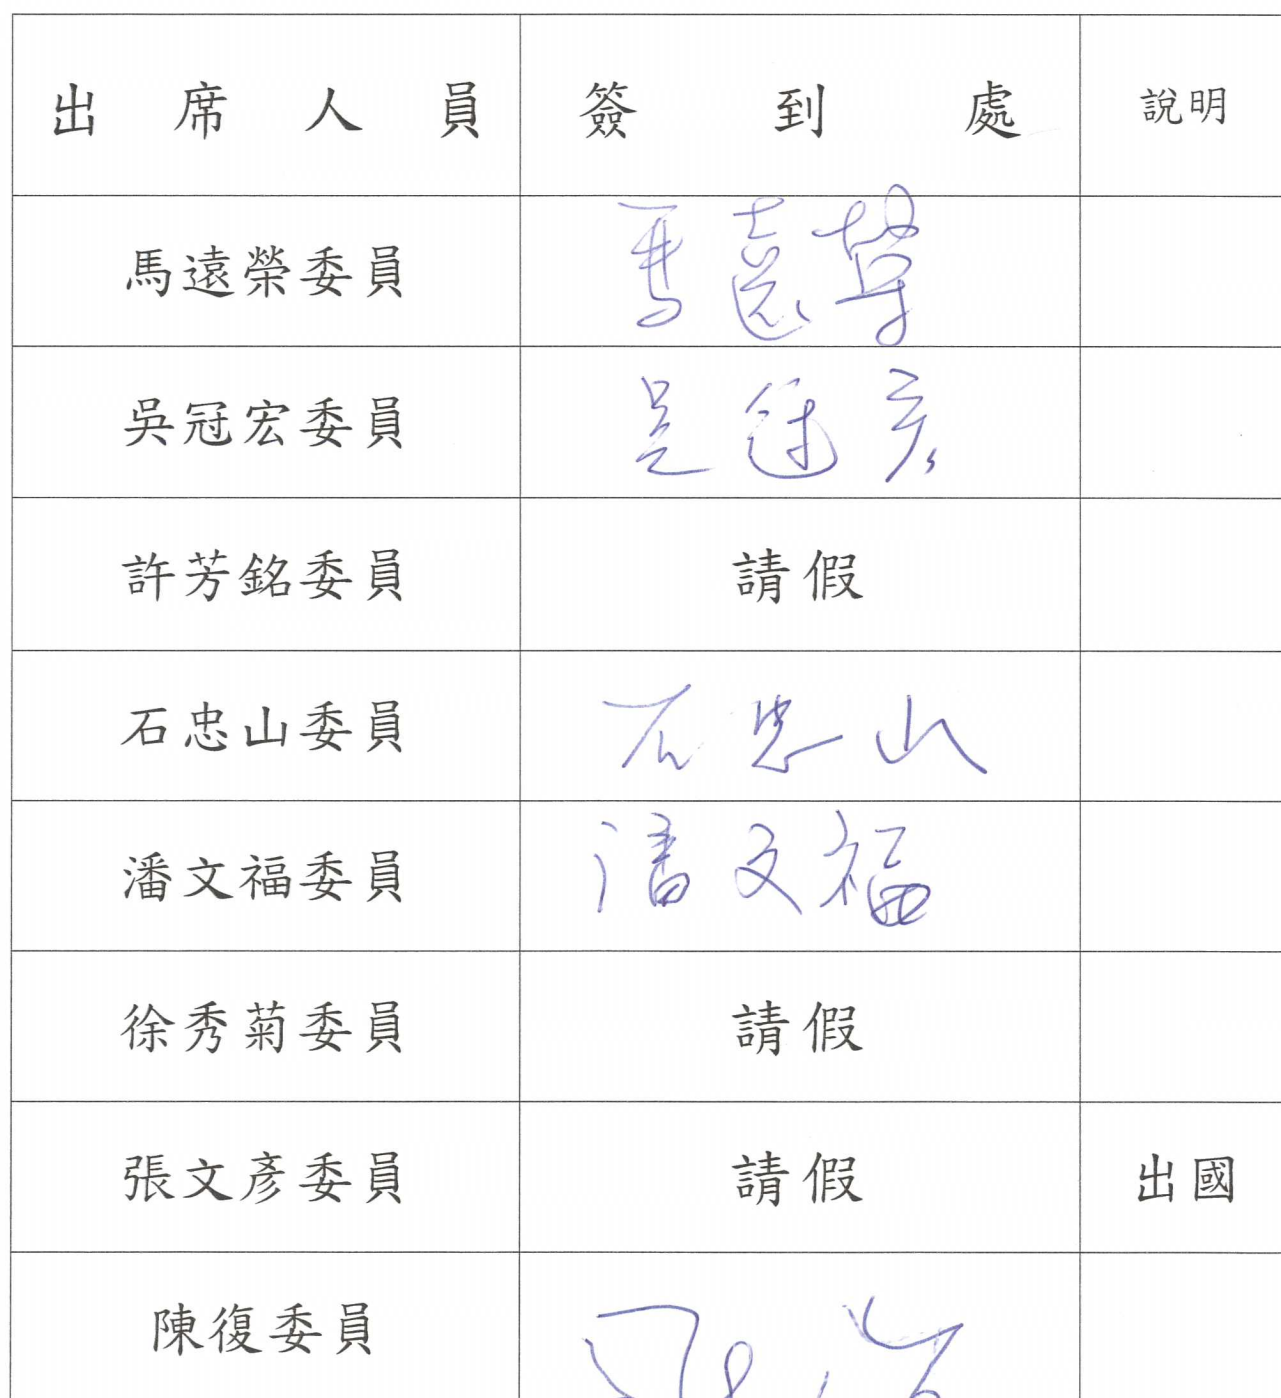 出席人員 簽到處 說明
馬遠榮委員 馬遠榮
吳冠宏委員 吳冠宏
許芳銘委員 請假
石忠山委員 石忠山
潘文福委員 潘文福
徐秀菊委員 請假
張文彥委員 請假 出國
陳復委員